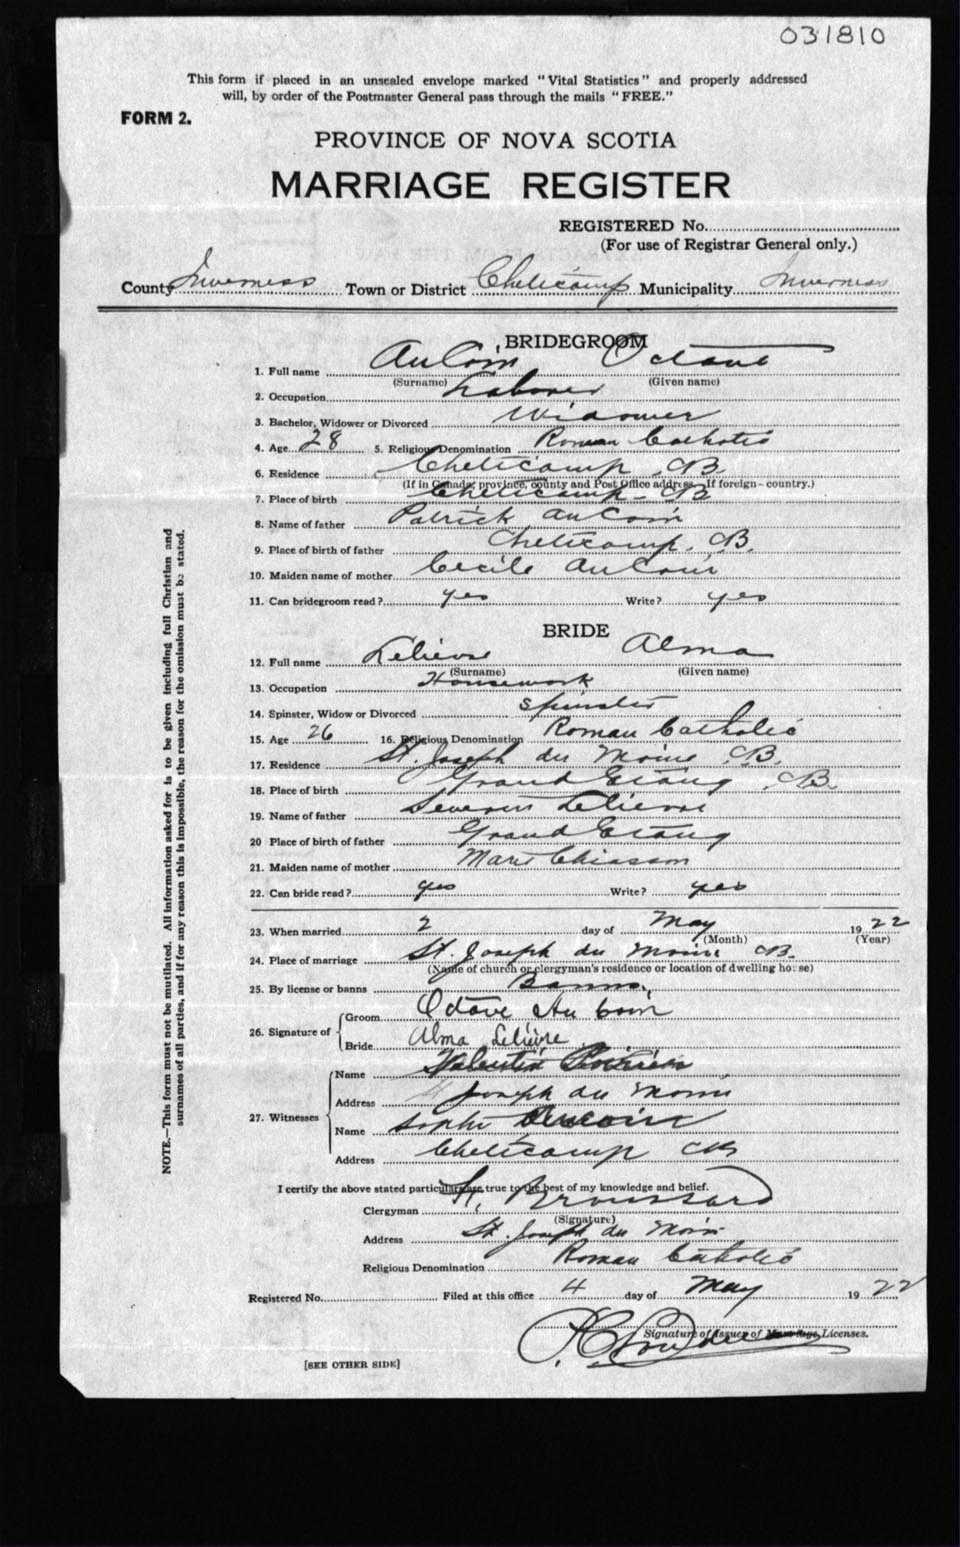 031810
This form if placed in an unsealed envelope marked "Vital Statistics" and properly addressed
will, by order of the Postmaster General pass through the mails "FREE."
FORM 2.
PROVINCE OF NOVA SCOTIA
MARRIAGE REGISTER
REGISTERED No.
(For use of Registrar General only.)
County Inverness Town or District Cheticamp Municipality Inverness
BRIDEGROOM
1. Full name AuCoin Octave
(Surname) (Given name)
2. Occupation Laborer
3. Bachelor, Widower or Divorced Widower
4. Age 28 5. Religious Denomination Roman Catholic
6. Residence Cheticamp CB
(If in Canada, province, county and Post Office address. If foreign—country.)
7. Place of birth Cheticamp CB
8. Name of father Patrick AuCoin
9. Place of birth of father Cheticamp, CB.
10. Maiden name of mother Cecile AuCoin
11. Can bridegroom read? yes Write? yes
BRIDE
12. Full name Lelievre Alma
(Surname) (Given name)
13. Occupation Housework
14. Spinster, Widow or Divorced Spinster
15. Age 26 16. Religious Denomination Roman Catholic
17. Residence St. Joseph du Moine CB.
18. Place of birth Grand Etang CB.
19. Name of father Severin Lelievre
20 Place of birth of father Grand Etang
21. Maiden name of mother Marie Chiasson
22. Can bride read? yes Write? yes
23. When married 2 day of May 1922
(Month) (Year)
24. Place of marriage St. Joseph du Moine CB.
(Name of church or clergyman's residence or location of dwelling house)
25. By license or banns Banns.
26. Signature of Groom Octave Au Coin
Bride Alma Lelièvre
27. Witnesses
Name
Address Joseph du Moine
Name Sophie Aucoin
Address Cheticamp CB
I certify the above stated particulars are true to the best of my knowledge and belief.
Clergyman Broussard
(Signature)
Address St. Joseph du Moine
Religious Denomination Roman Catholic
Registered No. Filed at this office 4 day of May 1922
Signature of Issuer of Marriage Licenses.
[SEE OTHER SIDE]
NOTE.—This form must not be mutilated. All information asked for is to be given including full Christian and
surnames of all parties, and if for any reason this is impossible, the reason for the omission must be stated.